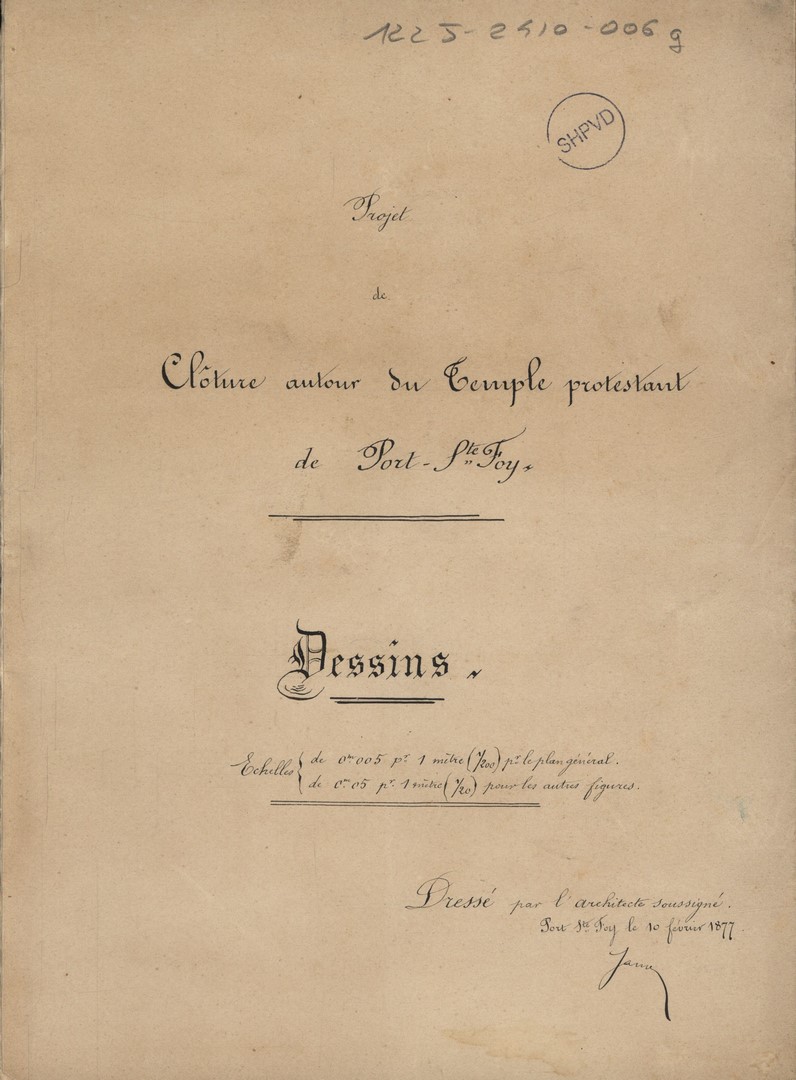 122 J - 2410 - 006 g
SHPVD
Projet
de
Clôture autour du Temple protestant
de Port-Ste Foy.
Dessins.
Echelles { de 0m005 pr 1 mètre (1/200) pr le plan général.
de 0m05 pr 1 mètre (1/20) pour les autres figures.
Dressé par l'architecte soussigné.
Port Ste Foy le 10 février 1877.